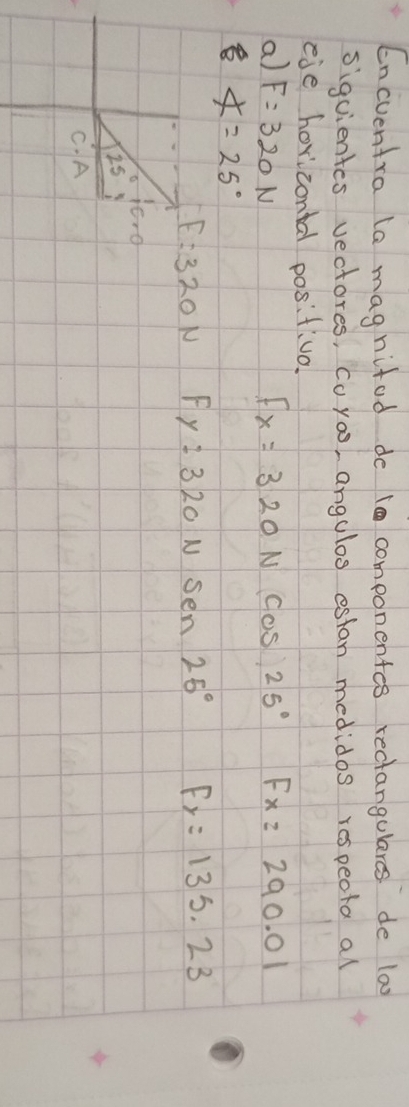 Encuentra la magnitud de la componentes rectangulares de los
siguientes vectores, cuyos angulos estan medidos respecto al
eje horizontal positivo.
a) F=320N Fx=320N cos 25° Fx=290.01
∡=25°
F=320N Fy=320N sen 25° Fy=135.23
25°
C.O
C.A